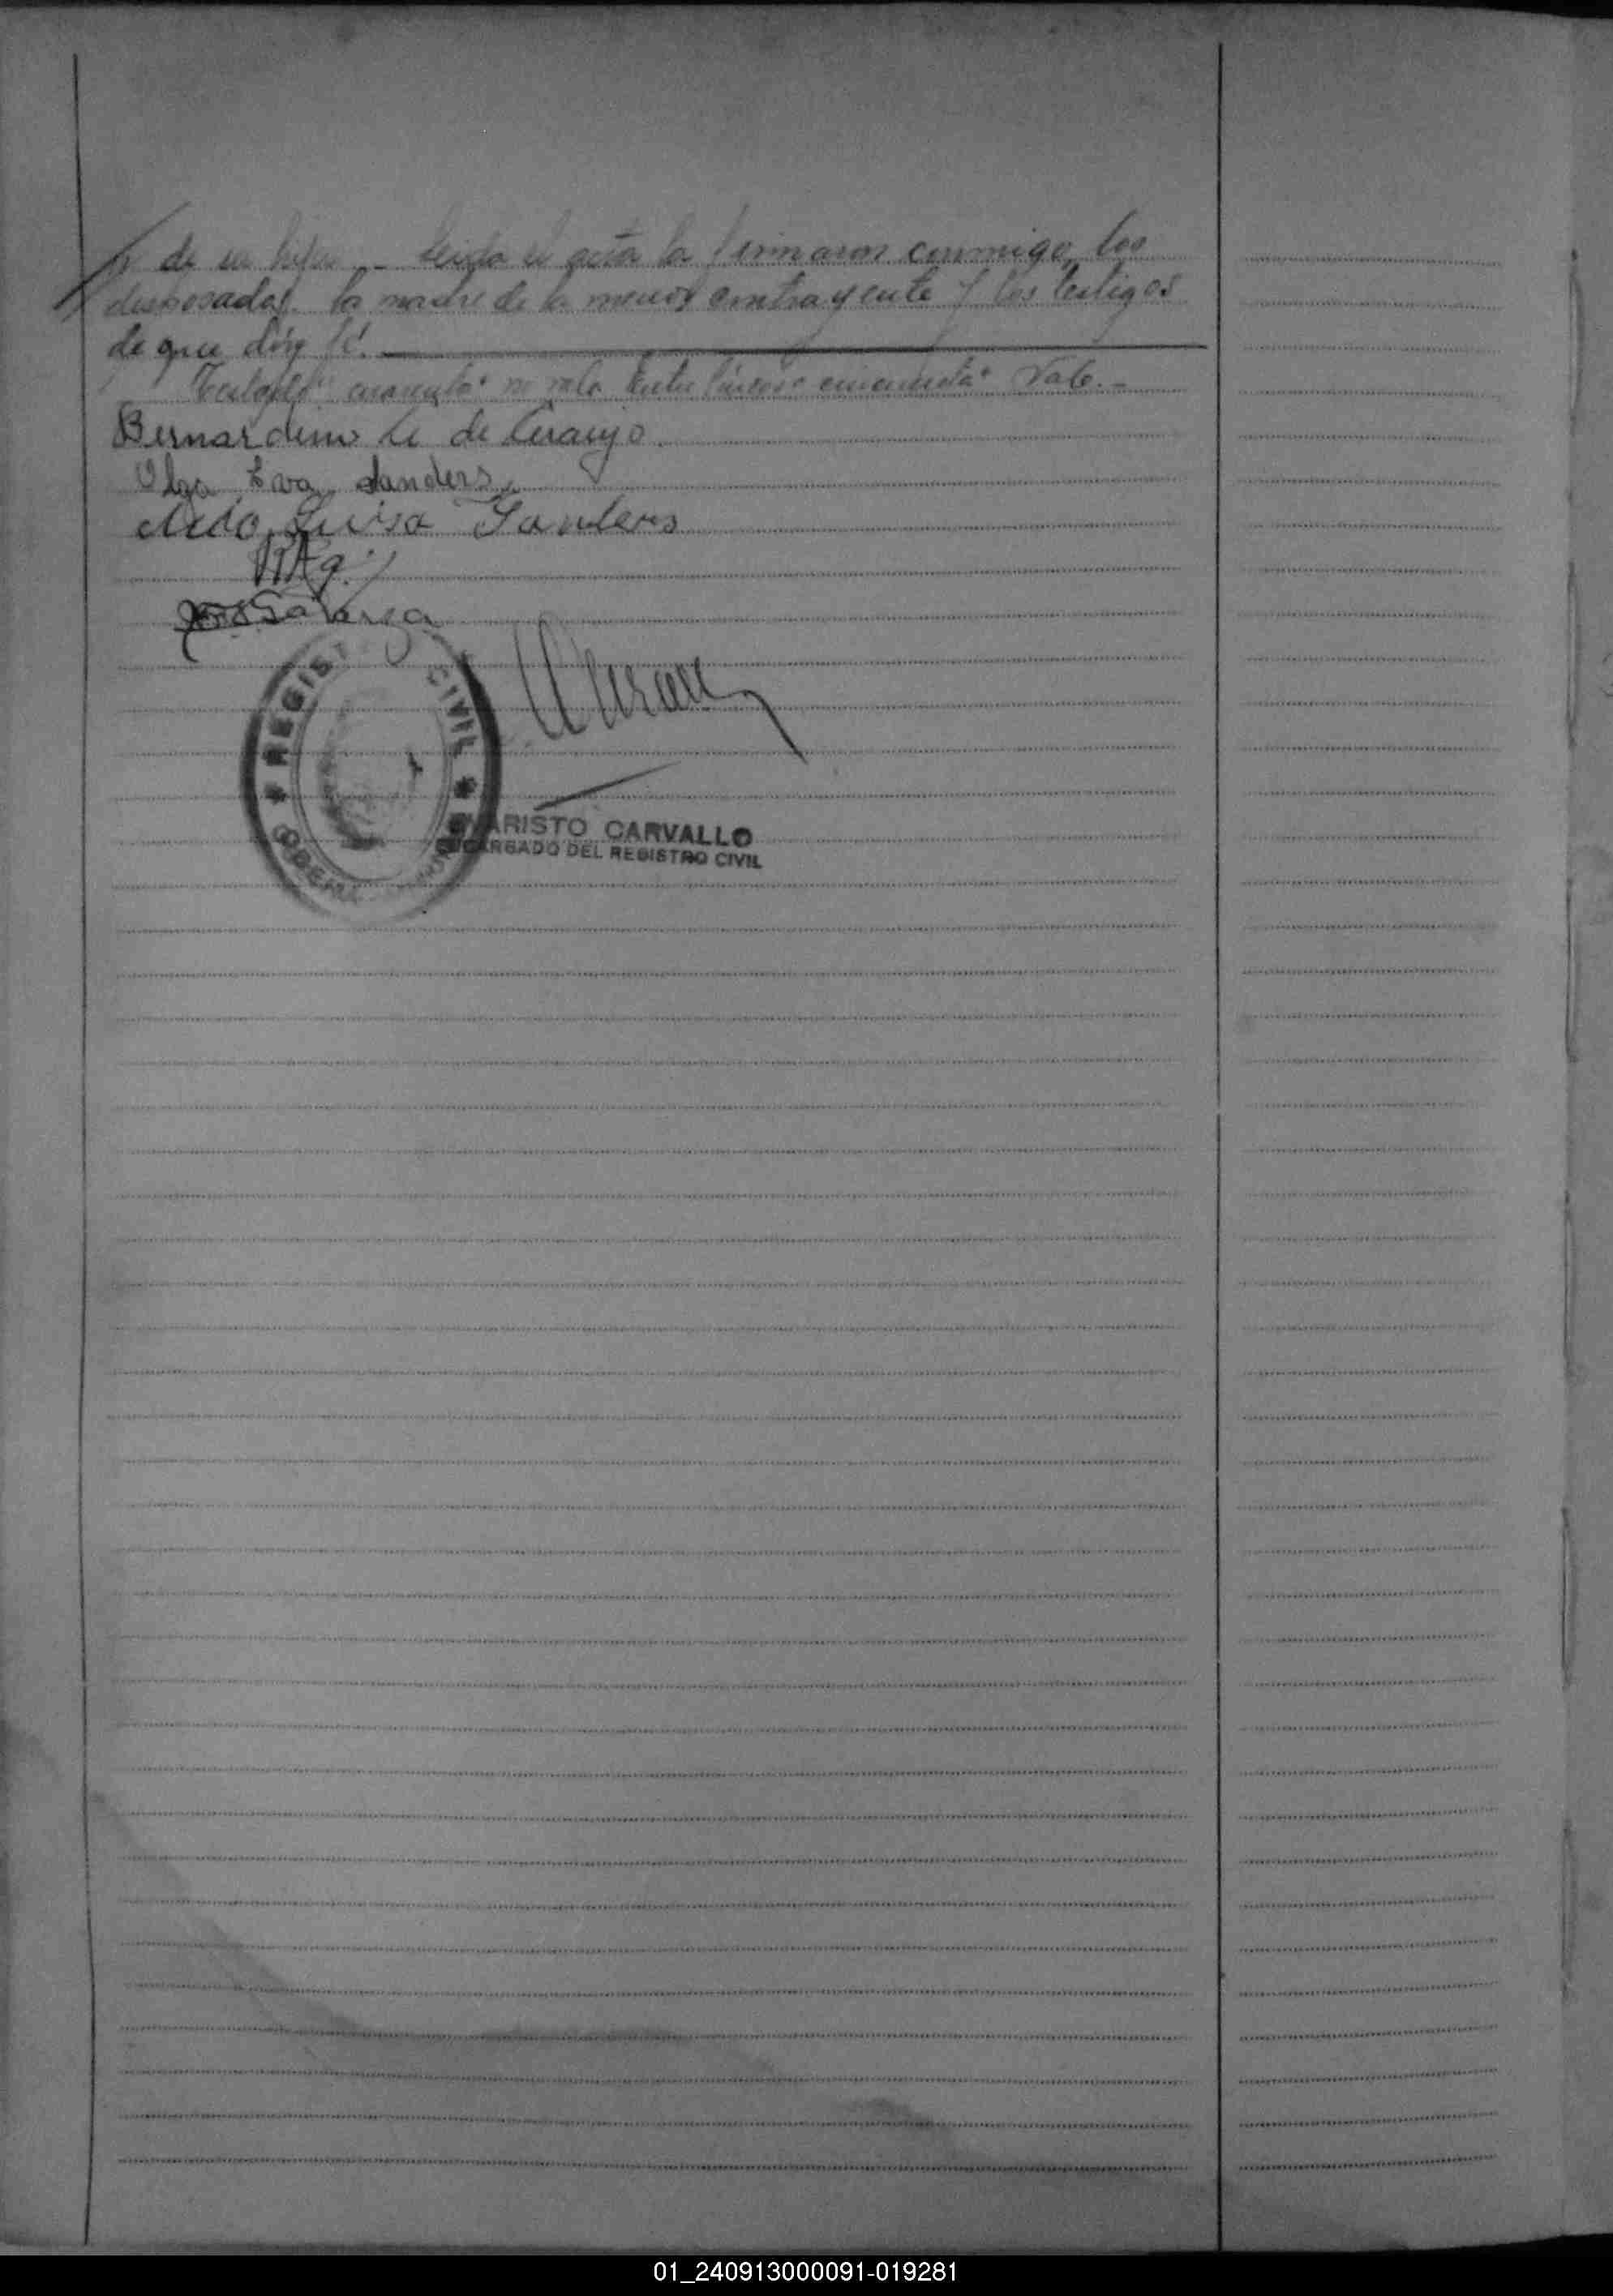 de su hija - leída el acta la firmaron conmigo, los
desposados, la madre de la menor contrayente y los testigos
de que dóy fé.
Testado "cuarenta" no vale Entre líneas "cincuenta" Vale.-
Bernardino de Araujo
Olga Eva Sanders
Luisa Sanders
REGIST CIVIL
ARISTO CARVALLO
ENCARGADO DEL REGISTRO CIVIL
01_240913000091-019281